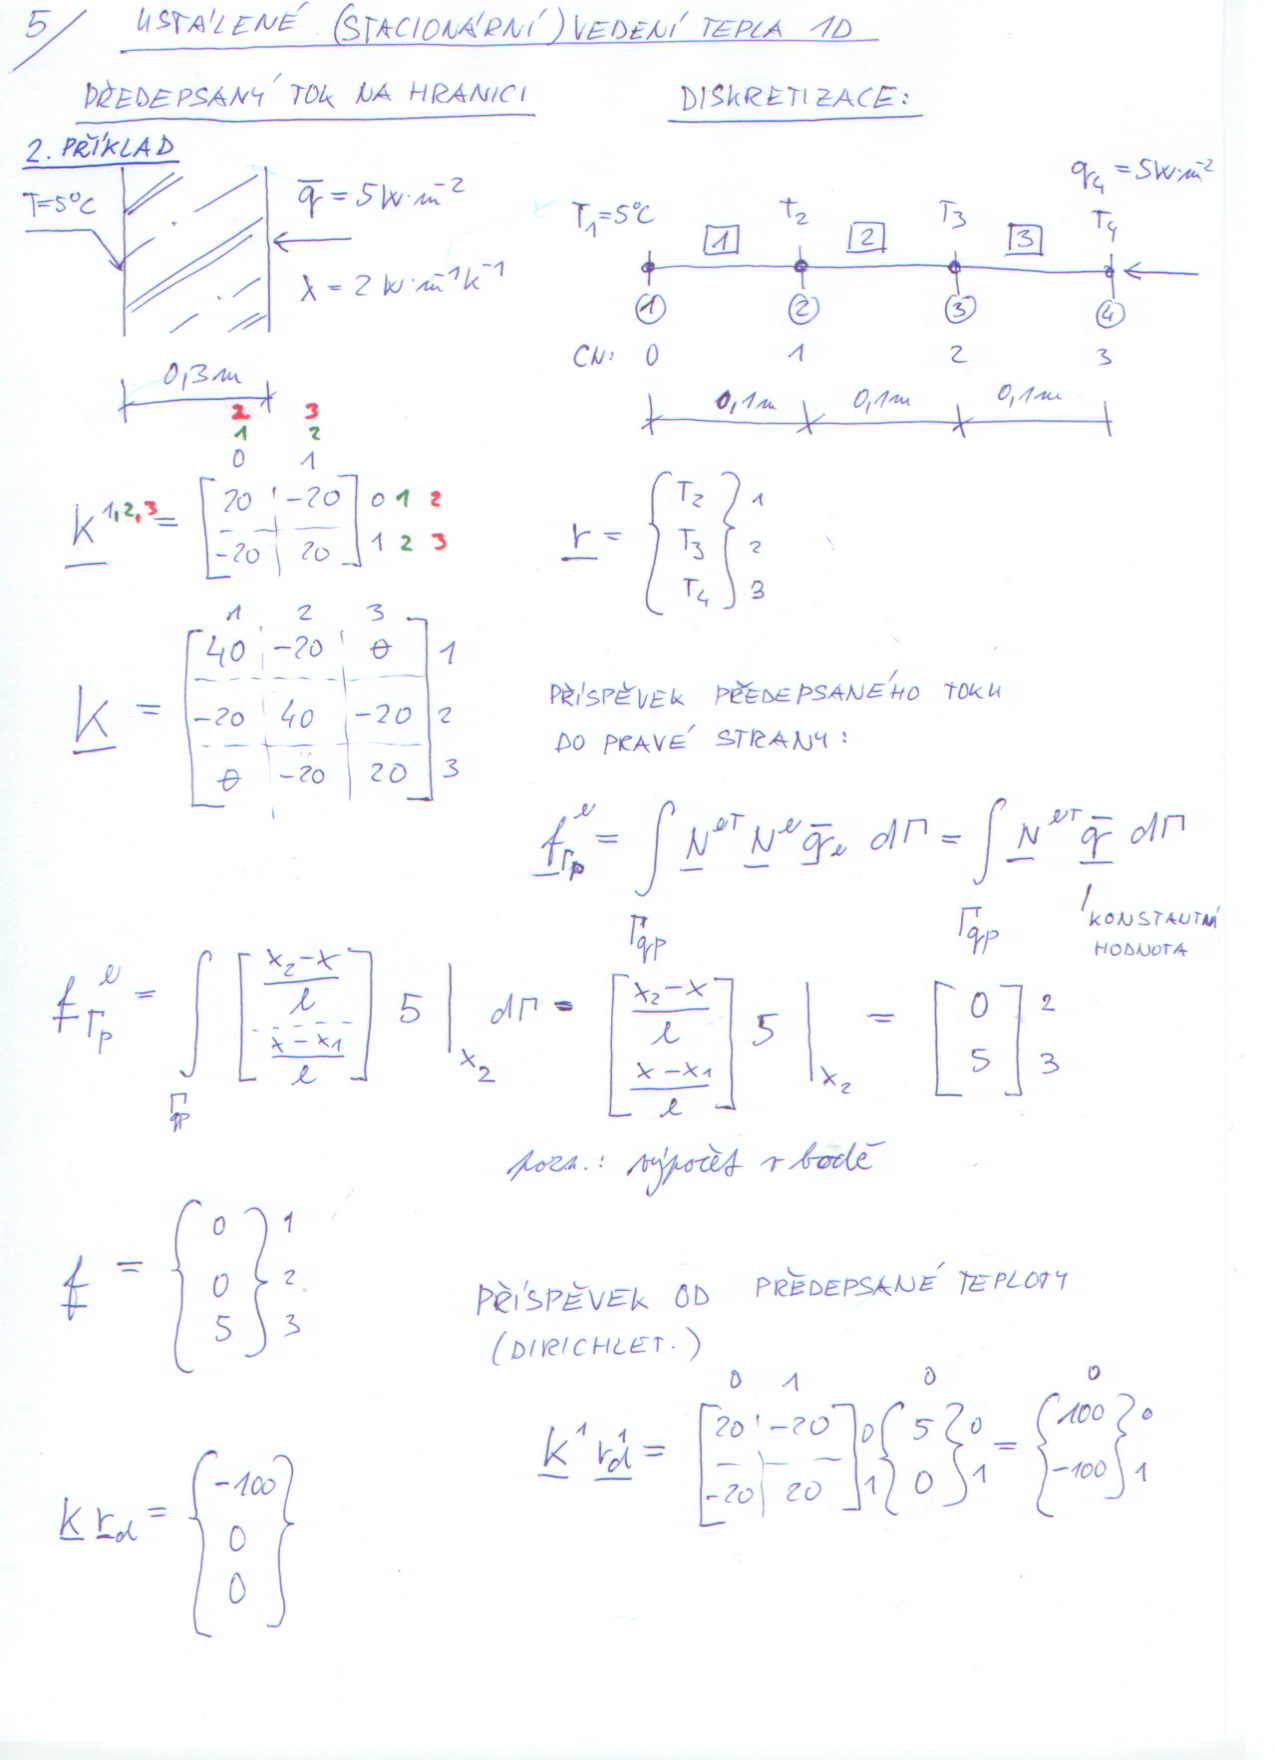 5/ USTÁLENÉ (STACIONÁRNÍ) VEDENÍ TEPLA 1D
PŘEDEPSANÝ TOK NA HRANICI
DISKRETIZACE:
2. PŘÍKLAD
T=5°C
q̄ = 5 W·m⁻²
λ = 2 W·m⁻¹K⁻¹
0,3m
q₄ = 5W·m⁻²
T₁=5°C T₂ T₃ T₄
1 2 3
① ② ③ ④
CN: 0 1 2 3
0,1m 0,1m 0,1m
2 3
1 2
0 1
K^1,2,3 = [20 -20] 0 1 2
[-20 20] 1 2 3
r = {T₂} 1
{T₃} 2
{T₄} 3
1 2 3
K = [40 -20 0] 1
[-20 40 -20] 2
[0 -20 20] 3
PŘÍSPĚVEK PŘEDEPSANÉHO TOKU
DO PRAVÉ STRANY:
f^e_Γp = ∫_Γqp N^eT N^e q̄_e dΓ = ∫_Γqp N^eT q̄ dΓ
KONSTANTNÍ
HODNOTA
f^e_Γp = ∫_Γqp [(x₂-x)/l ; (x-x₁)/l] 5 |_x₂ dΓ = [(x₂-x)/l ; (x-x₁)/l] 5 |_x₂ = [0 ; 5] 2 3
pozn.: výpočet v bodě
f = {0} 1
{0} 2
{5} 3
PŘÍSPĚVEK OD PŘEDEPSANÉ TEPLOTY
(DIRICHLET.)
0 1 0 0
K¹ r¹_d = [20 -20] 0 {5} 0 = {100} 0
[-20 20] 1 {0} 1 {-100} 1
K r_d = {-100}
{0}
{0}